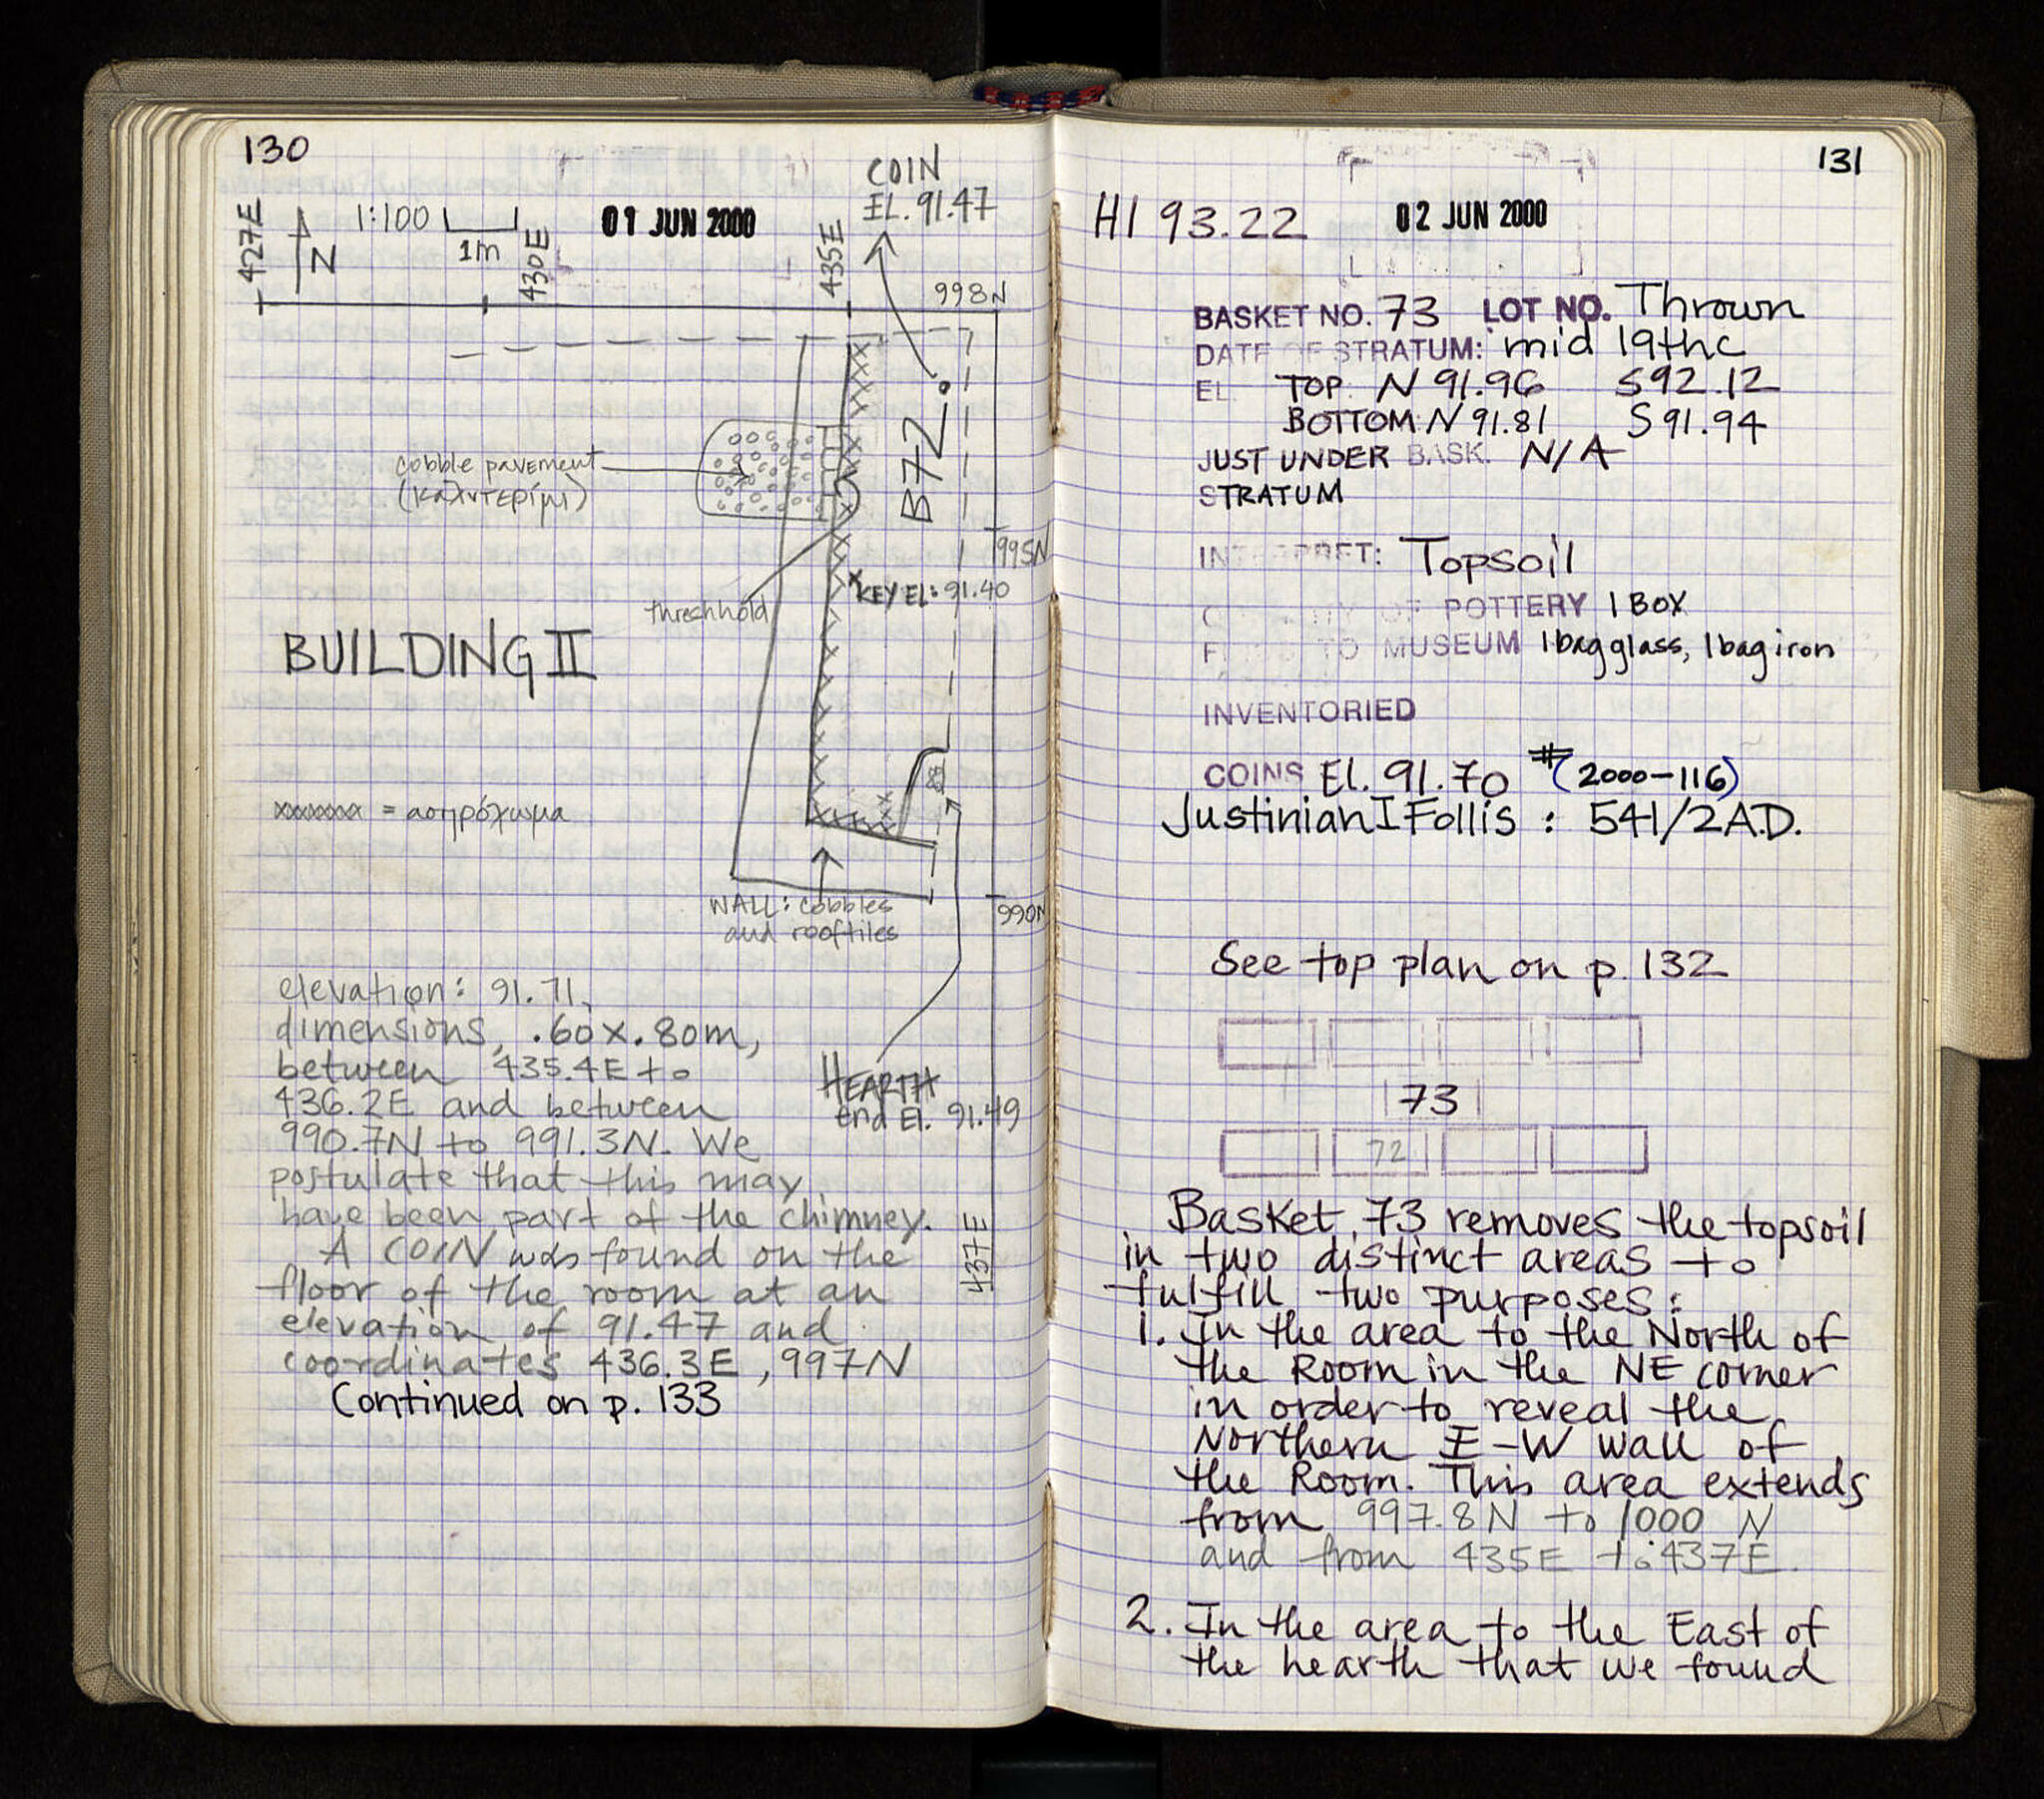 130
427E
N
1:100
1m
430E
01 JUN 2000
435E
COIN
EL. 91.47
998N
cobble pavement
(καλντερίμι)
B72
995N
KEY EL: 91.40
threshhold
BUILDING II
xxxxxxx = ασπρόχωμα
WALL: cobbles
and rooftiles
990N
elevation: 91.71,
dimensions, .60x.80m,
between 435.4E to
436.2E and between
990.7N to 991.3N. We
postulate that this may
have been part of the chimney.
HEARTH
end El. 91.49
437E
A COIN was found on the
floor of the room at an
elevation of 91.47 and
coordinates 436.3E, 997N
Continued on p. 133
131
HI 93.22
02 JUN 2000
BASKET NO. 73 LOT NO. Thrown
DATE OF STRATUM: mid 19thc
EL TOP N 91.96 S92.12
BOTTOM: N 91.81 S 91.94
JUST UNDER BASK. N/A
STRATUM
INTERPRET: Topsoil
QUANTITY OF POTTERY 1 BOX
FINDS TO MUSEUM 1 bag glass, 1 bag iron
INVENTORIED
COINS El. 91.70 #(2000-116)
Justinian I Follis : 541/2 A.D.
See top plan on p. 132
73
72
Basket 73 removes the topsoil
in two distinct areas to
fulfill two purposes:
1. In the area to the North of
the Room in the NE corner
in order to reveal the
Northern E-W wall of
the Room. This area extends
from 997.8N to 1000 N
and from 435E to 437E.
2. In the area to the East of
the hearth that we found